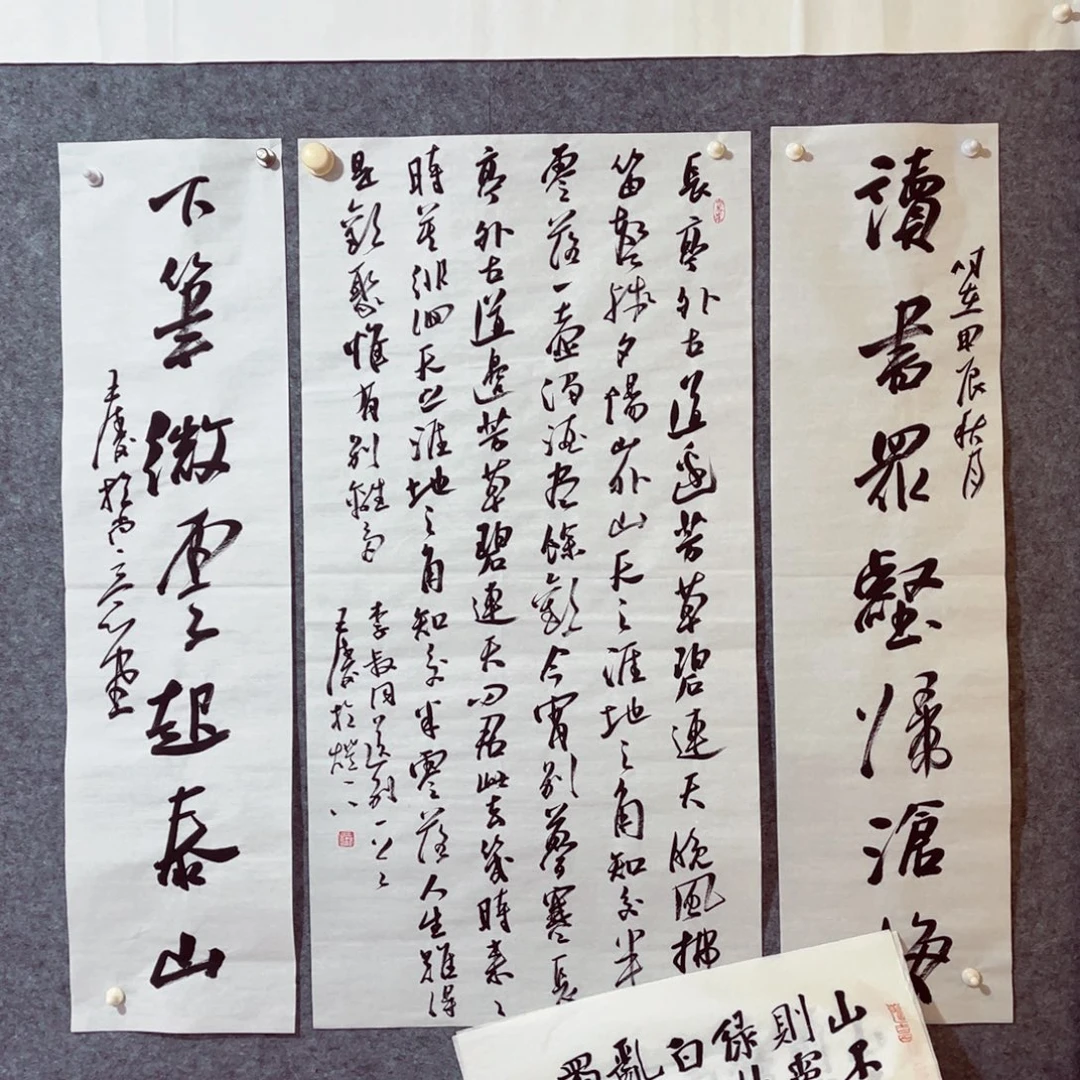 讀書眾壑歸滄海
時在甲辰秋月
長亭外古道邊芳草碧連天晚風拂
笛聲殘夕陽山外山天之涯地之角知交半
零落一壺濁酒盡餘歡今宵別夢寒長
亭外古道邊芳草碧連天问君此去幾時來來
時莫徘徊天之涯地之角知交半零落人生難得
是歡聚惟有別離多
李叔同送別一首
王慶於
下筆微雲起泰山
王慶於尚
山不
則靈
綠
白
亂
蜀